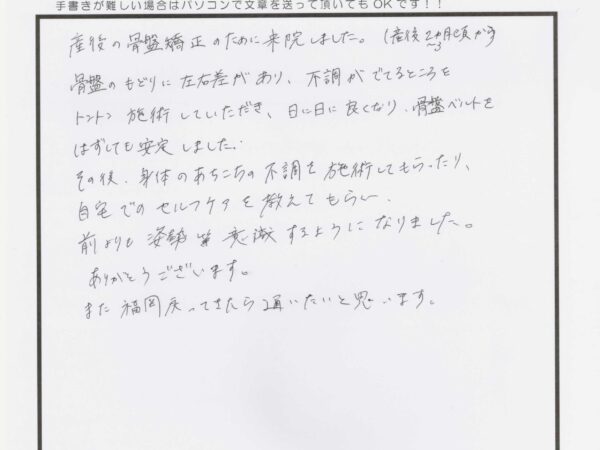 手書きが難しい場合はパソコンで文章を送って頂いてもOKです！！
産後の骨盤矯正のために来院しました。(産後2ヵ月頃から
〜3
骨盤のもどりに左右差があり、不調がでてるところを
トントン施術していただき、日に日に良くなり、骨盤ベルトを
はずしても安定しました。
その後、身体のあちこちの不調を施術してもらったり、
自宅でのセルフケアを教えてもらい、
前よりも姿勢 意識するようになりました。
ありがとうございます。
また福岡戻ってきたら通いたいと思います。